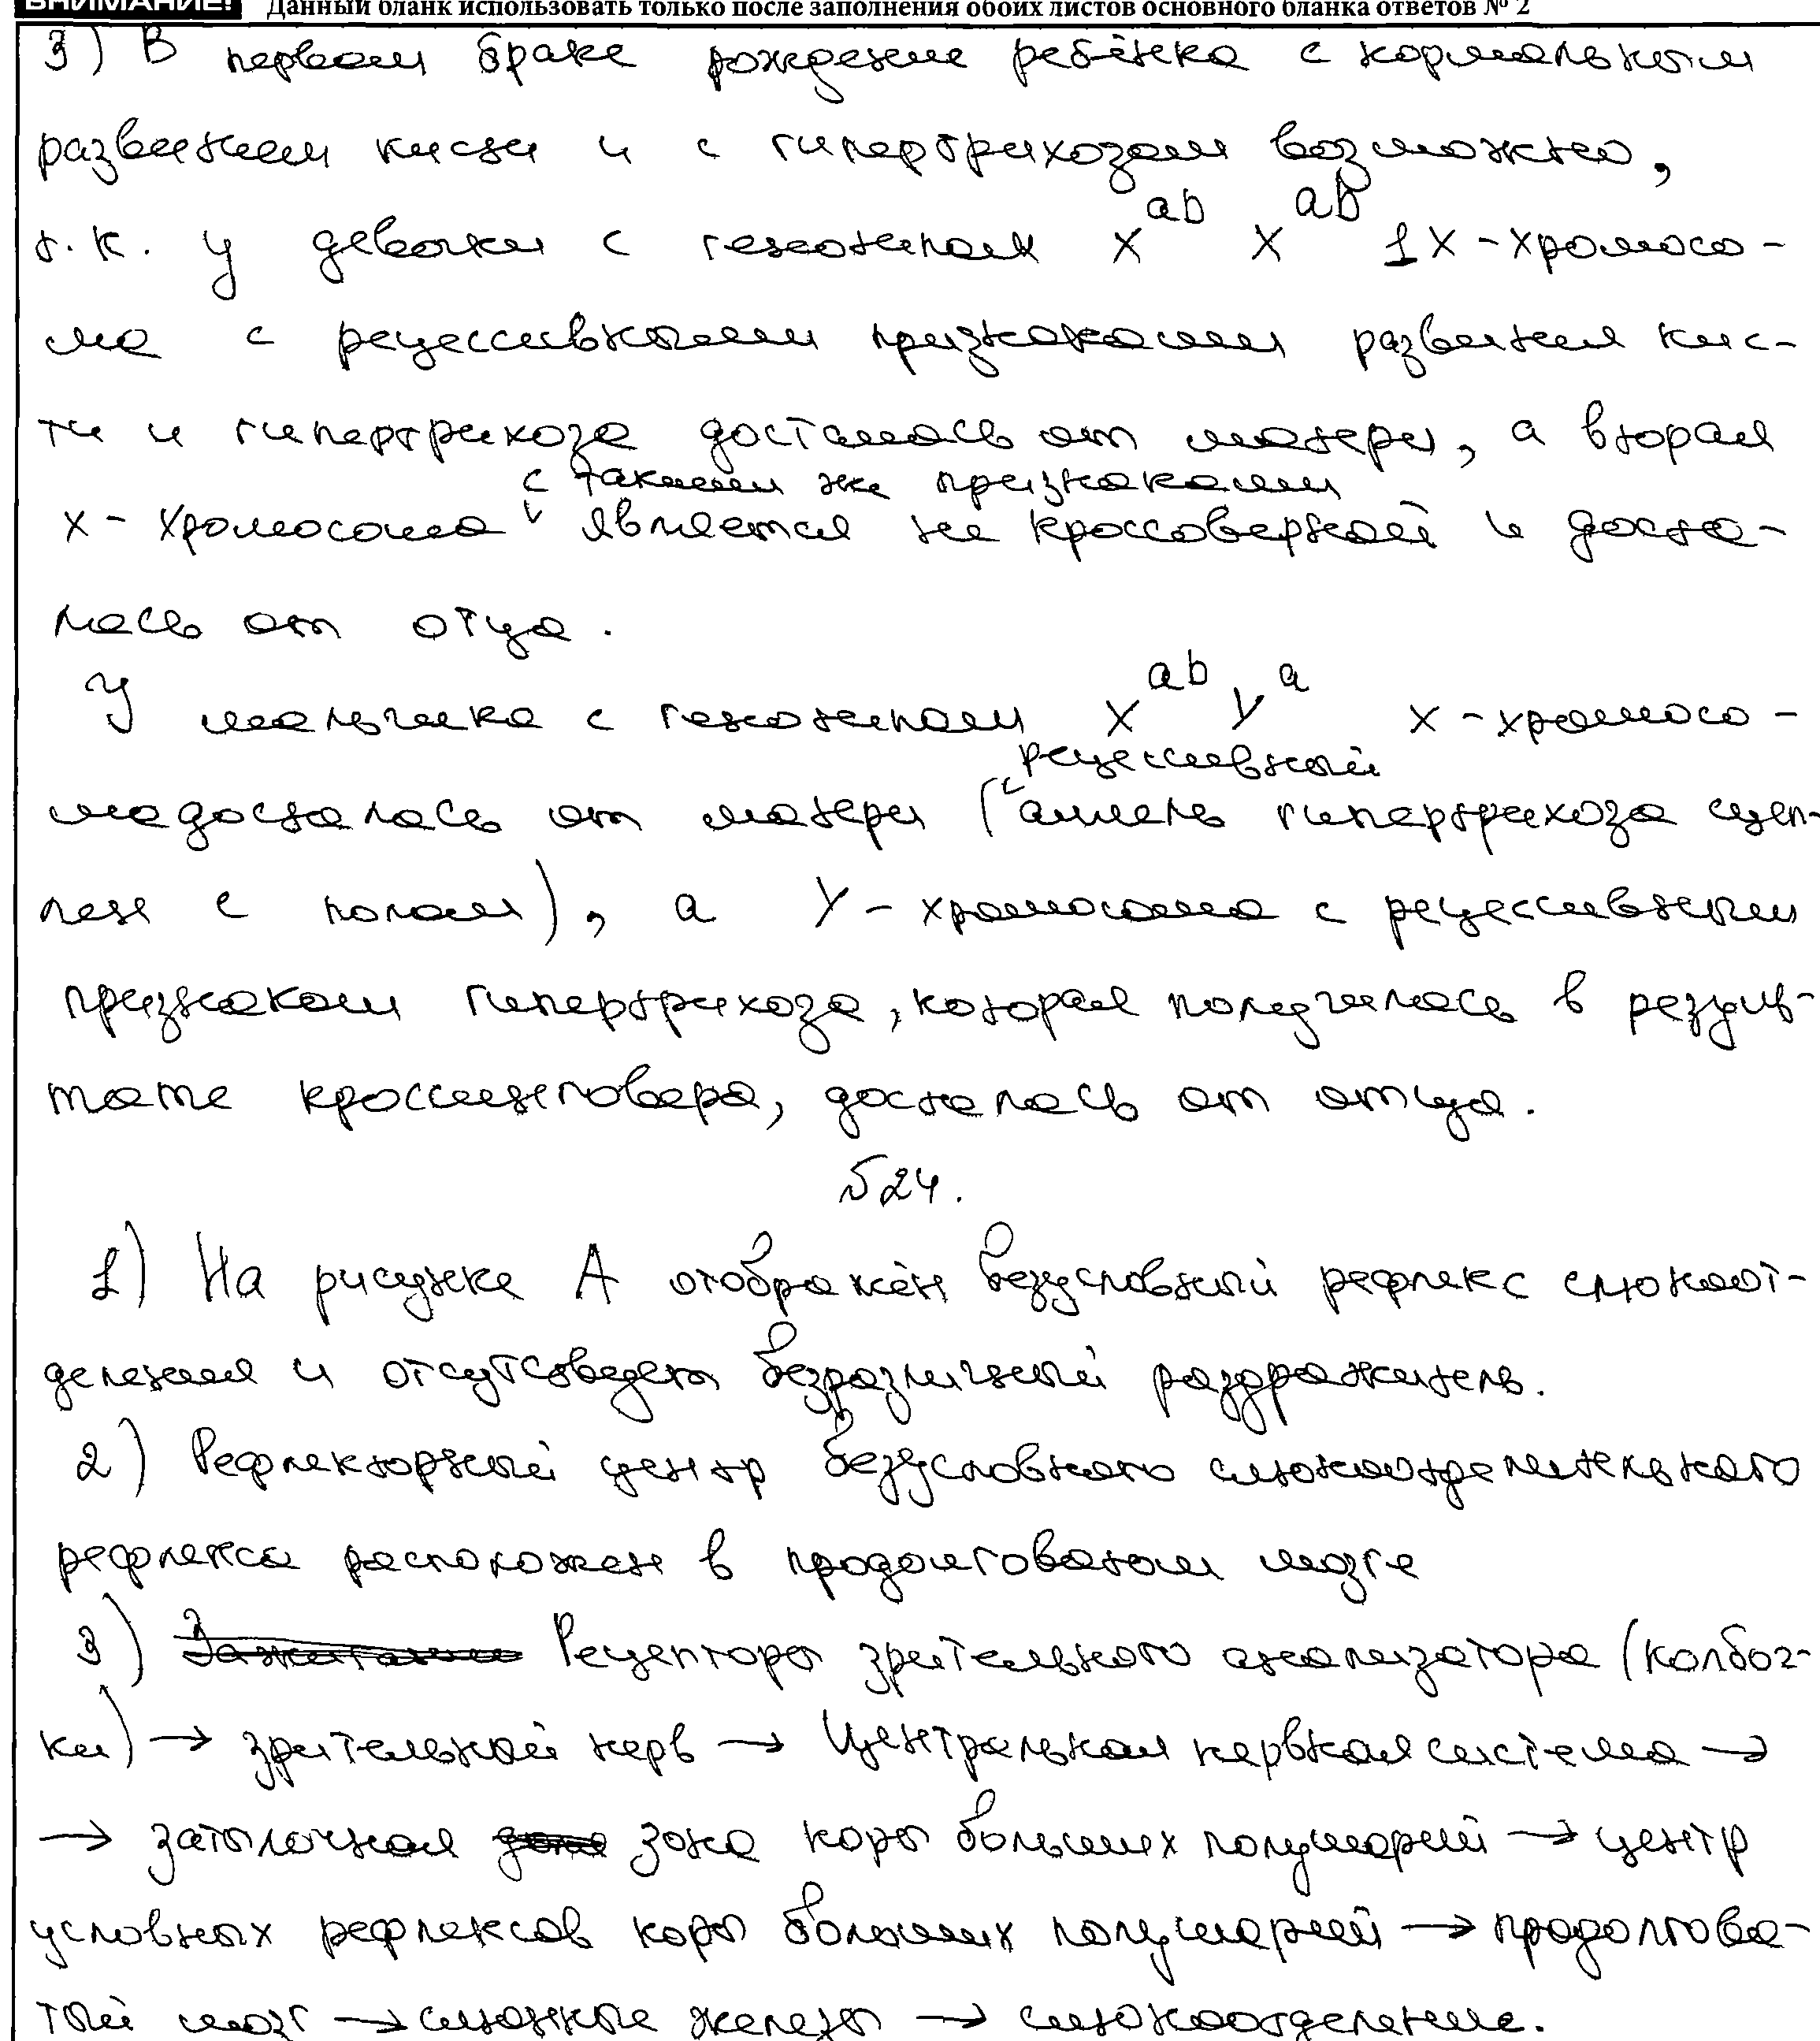 ВНИМАНИЕ! Данный бланк использовать только после заполнения обоих листов основного бланка ответов № 2
3) В первом браке рождение ребёнка с нормальным
развитием кисти и с гипертрихозом возможно,
т.к. у девочки с генотипом X^ab X^ab 1 X-хромосо-
ма с рецессивными признаками развития кис-
ти и гипертрихоза досталась от матери, а вторая
с такими же признаками
X-хромосома является не кроссоверной и доста-
лась от отца.
У мальчика с генотипом X^ab Y^a X-хромосо-
рецессивный
ма досталась от матери (аллель гипертрихоза сцеп-
лен с полом), а Y-хромосома с рецессивным
признаком гипертрихоза, которая получилась в резуль-
тате кроссинговера, досталась от отца.
№24.
1) На рисунке А отображён безусловный рефлекс слюноот-
деления и отсутсвует безразличный раздражитель.
2) Рефлекторный центр безусловного слюноотделительного
рефлекса расположен в продолговатом мозге
3) Рецепторы зрительного анализатора (колбоч-
ки) → зрительной нерв → Центральная нервная система →
→ затылочная зона коры больших полушарий → центр
условных рефлексов коры больших полушарий → продолгова-
тый мозг → слюнные железы → слюноотделение.